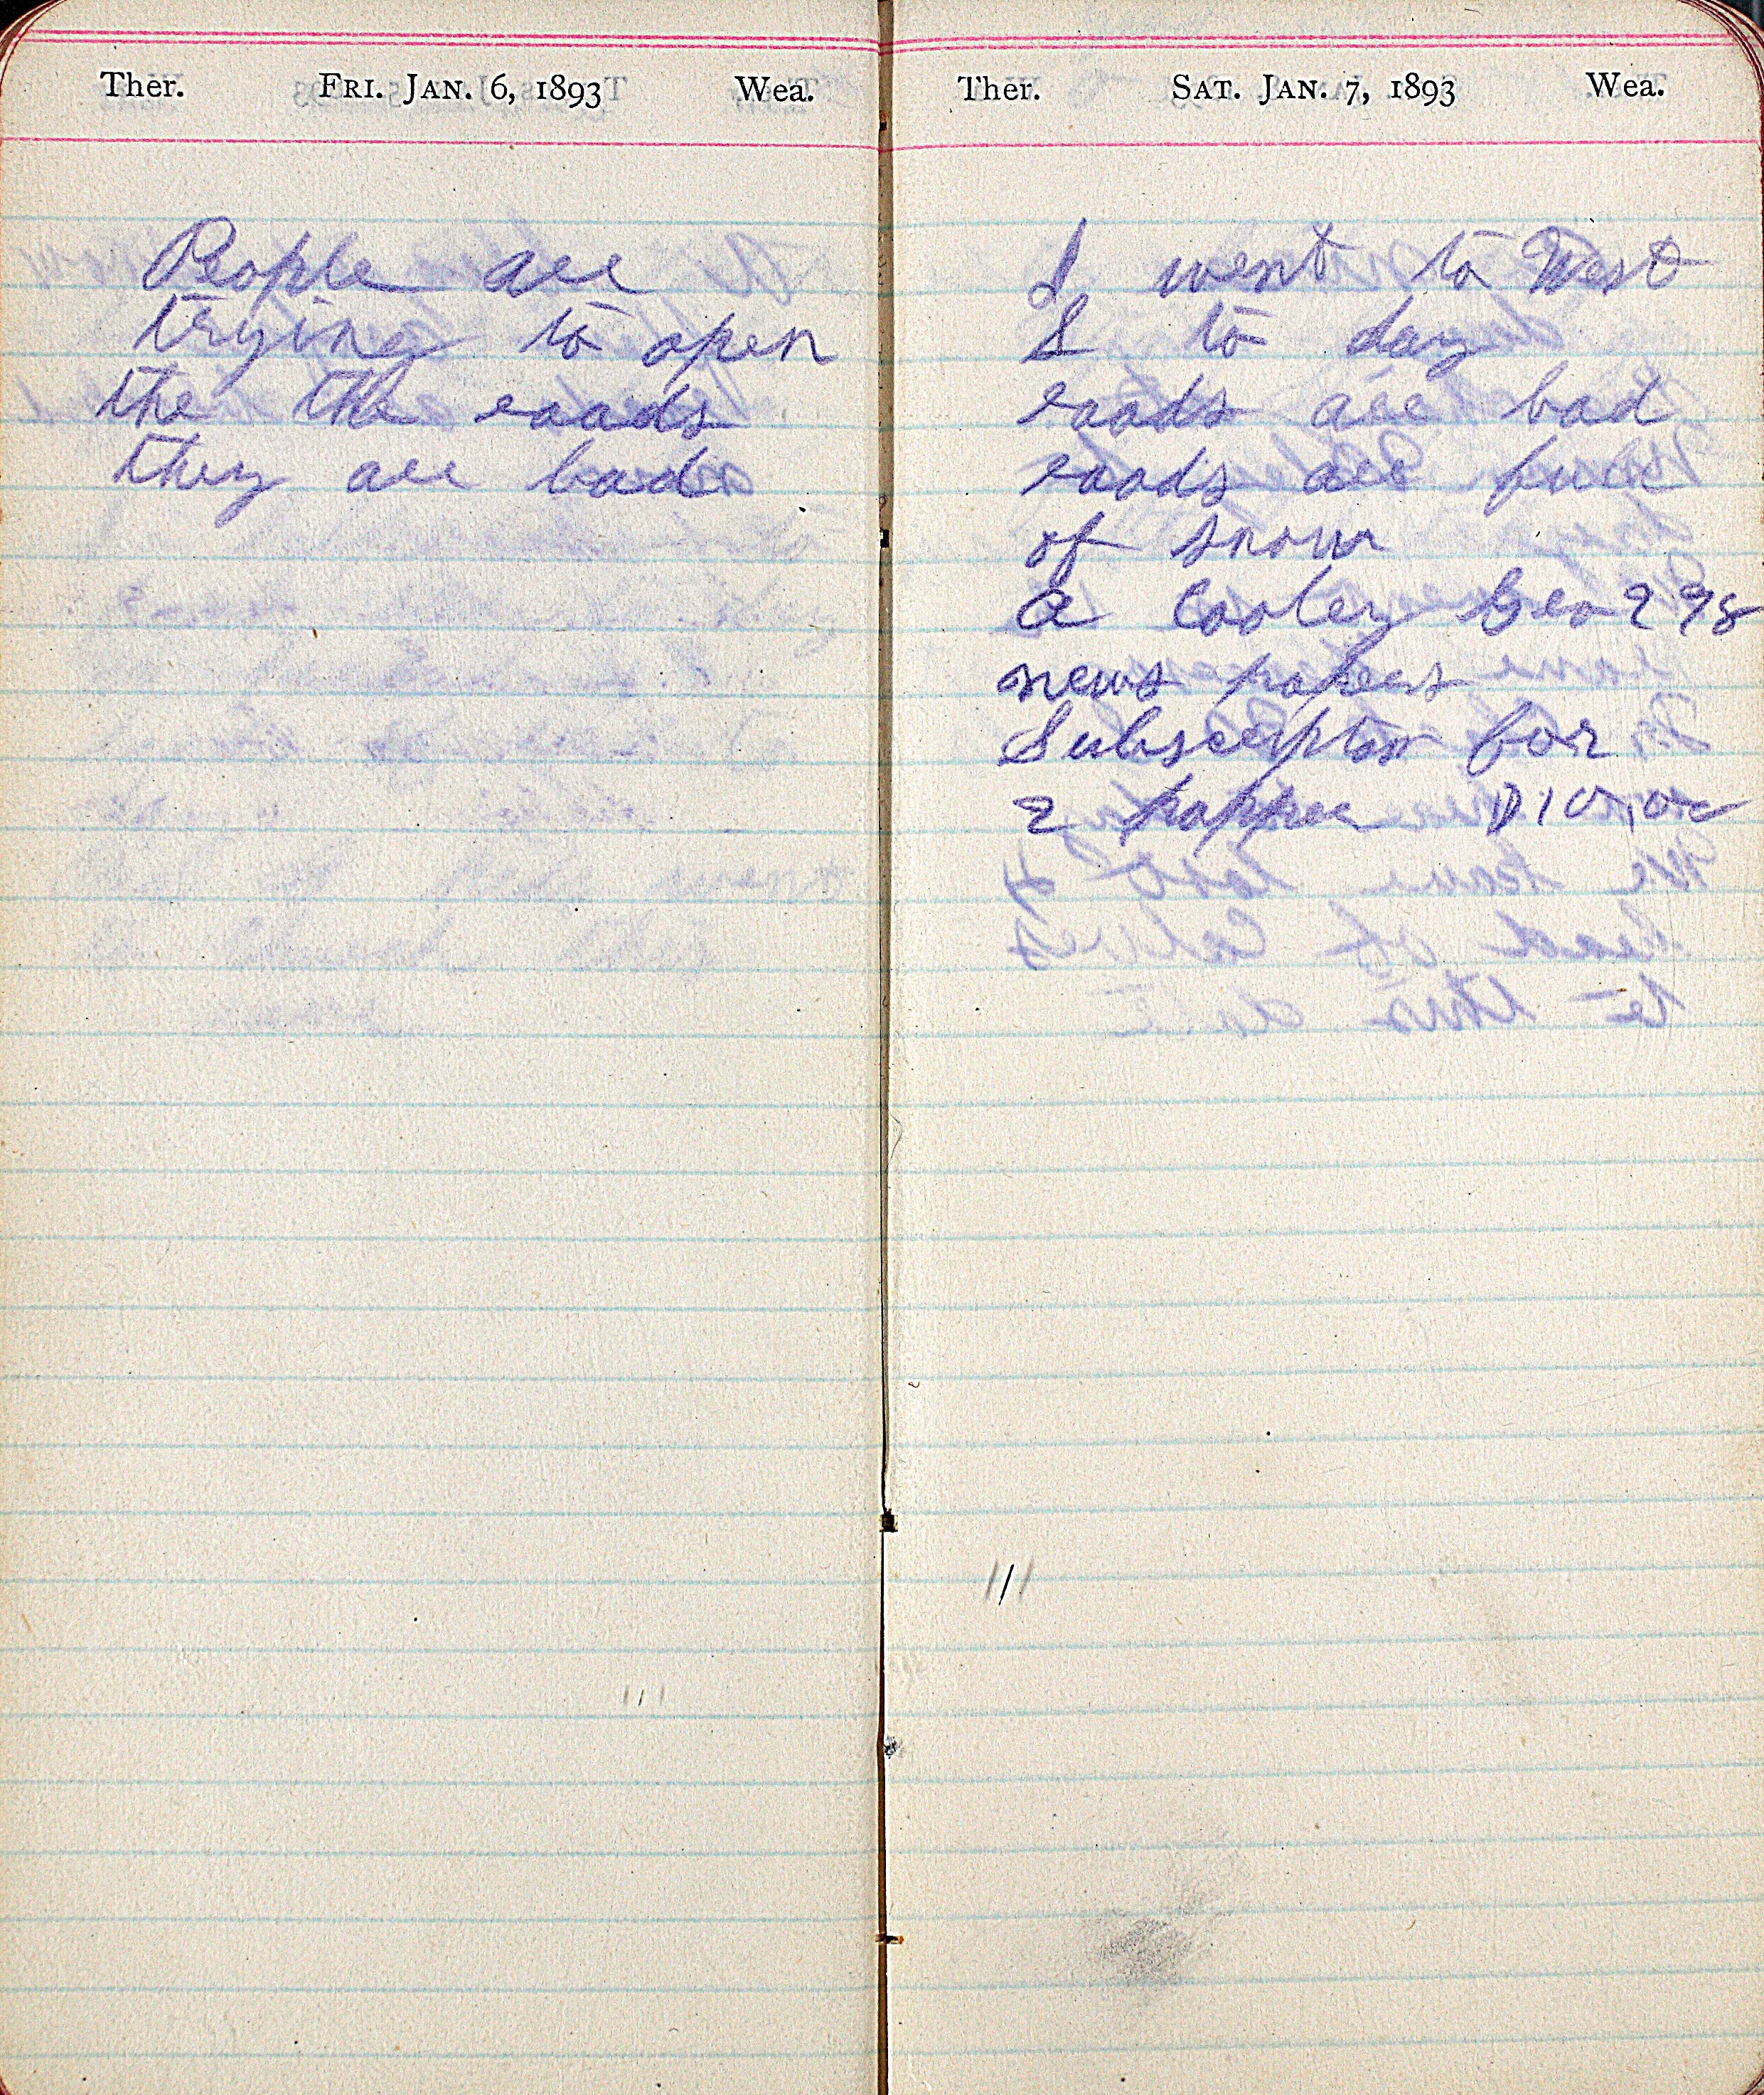 Ther. FRI. JAN. 6, 1893 Wea.
People are
trying to open
the the roads
they are bad
Ther. SAT. JAN. 7, 1893 Wea.
I went to West
S to day
roads are bad
roads are full
of snow
a Cooley Geo
news papers
Subscripton for
2 papper